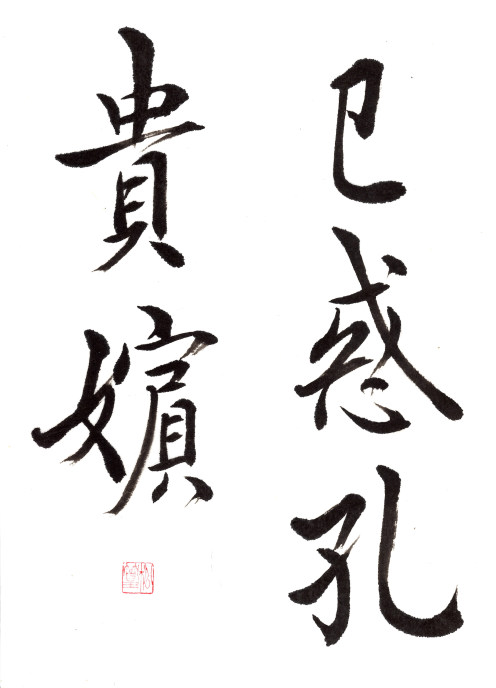 已惑孔
貴嬪